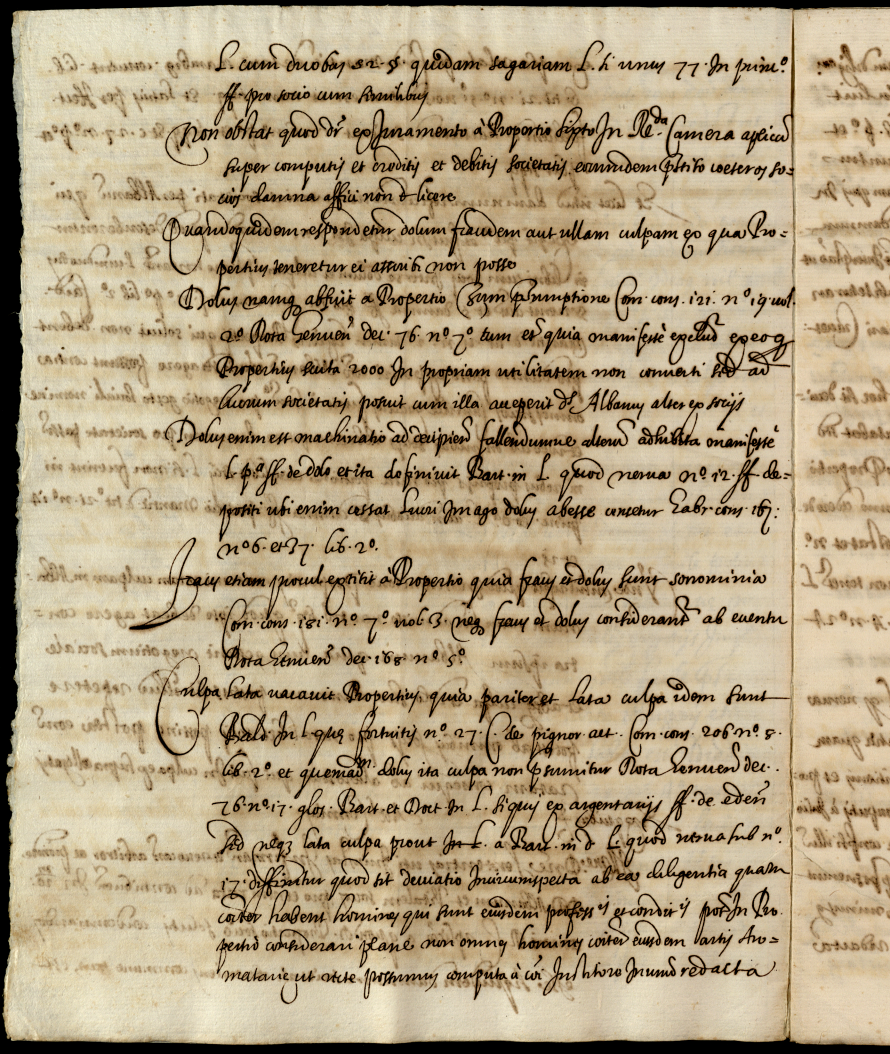 L. cum duobus 52. §. quidam sagariam L. si unus 77. In princ.º
ff. pro socio cum similibus
Non obstat quod dr̃ ex Juramento à Propertio In Re.da Camera
super computis et creditis et debitis societatis eorumdem coeteros so=
cios damna affici non licere
Quandoquidem respondetur dolum fraudem aut ullam culpam ex qua Pro=
pertius teneretur ei ascribi non posse
Dolus namq abfuit a Propertio Com. cons. 121. nº 19. vol.
2º Rota Genuen̄ dec. 76. nº 7º tum et̃ quia manifeste
Propertius scuta 2000 In propriam utilitatem non converti sed ad
lucrum societatis posuit cum illa acceperit Ds̃ Albanus alter ex socijs
Dolus enim est machinatio ad fallendumve adhibita manifeste
l. pª. ff. de dolo et ita definivit Bart. in L. quod nerva nº. 12. ff. de=
positi ubi enim cessat lucri Imago dolus abesse censetur cons. 167:
nº 6. et 37. lib. 2º.
Fraus etiam procul extitit à Propertio quia fraus et dolus sunt sononimia
Com. cons. 181. nº. 7º vol. 3. neq fraus et dolus considerant̃ ab eventu
Rota dec. 168 nº 5º
Culpa lata vacavit Propertius, quia pariter et lata culpa idem sunt
Bald. In l. quę fortuitis nº. 27. C. de pignor. act. Com. cons. 206 nº. 8.
lib. 2º. et quemad.m dolus ita culpa non p̃sumitur Rota Genuen̄ dec.
76. nº. 17. glos. Bart. et Doct. In L. si quis ex argentarijs ff. de eden̄
sed neq lata culpa prout In L. a Bart. in d. L. quod nerva sub nº.
17. diffinitur quod sit deviatio Incircunspecta ab ea diligentia quam
coĩter habent homines qui sunt eiusdem profess.is et condit.is In Pro.
pertio considerari plane non omnes homines coĩter eiusdem artis Aro=
matarie ut recte possumus computa à Institore In unum redacta